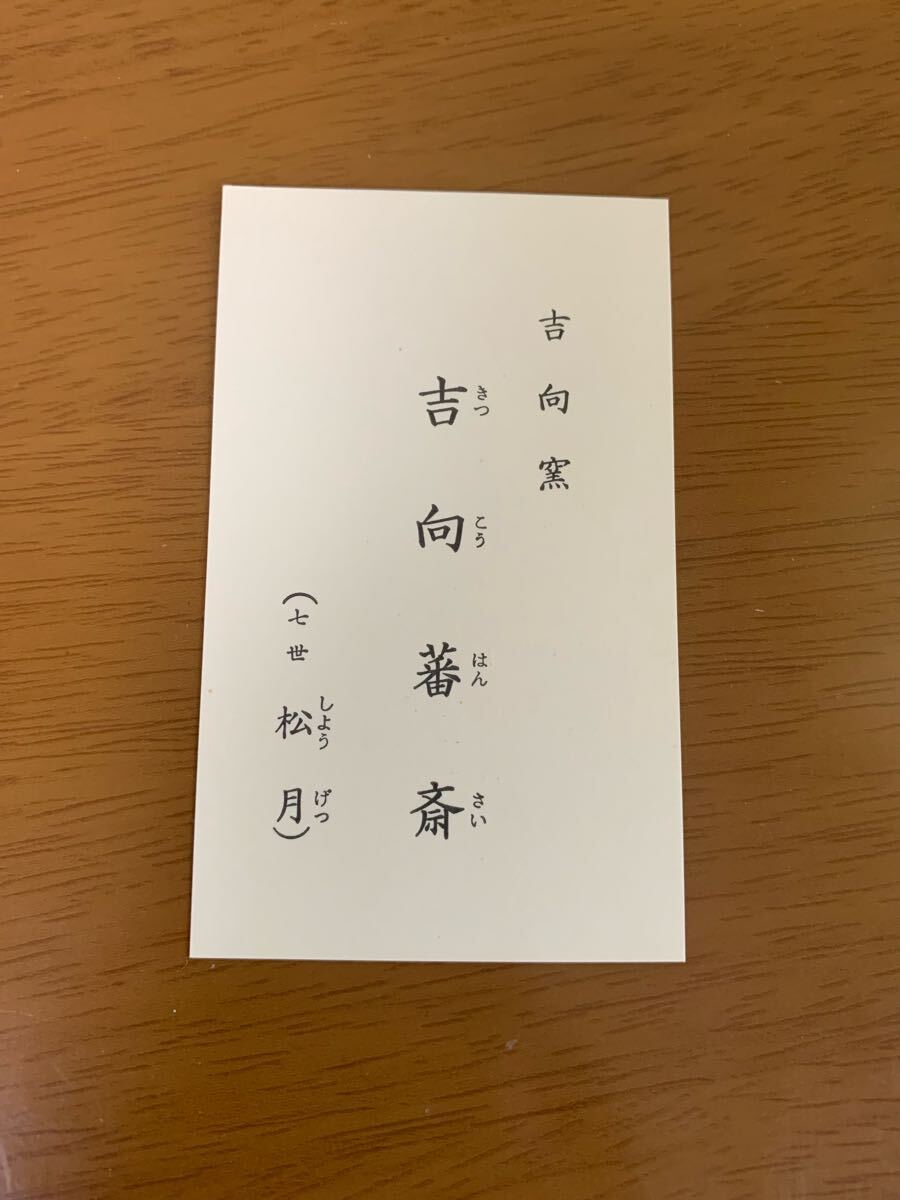 吉向窯
吉向蕃斎
きつこうはんさい
(七世松月)
しようげつ